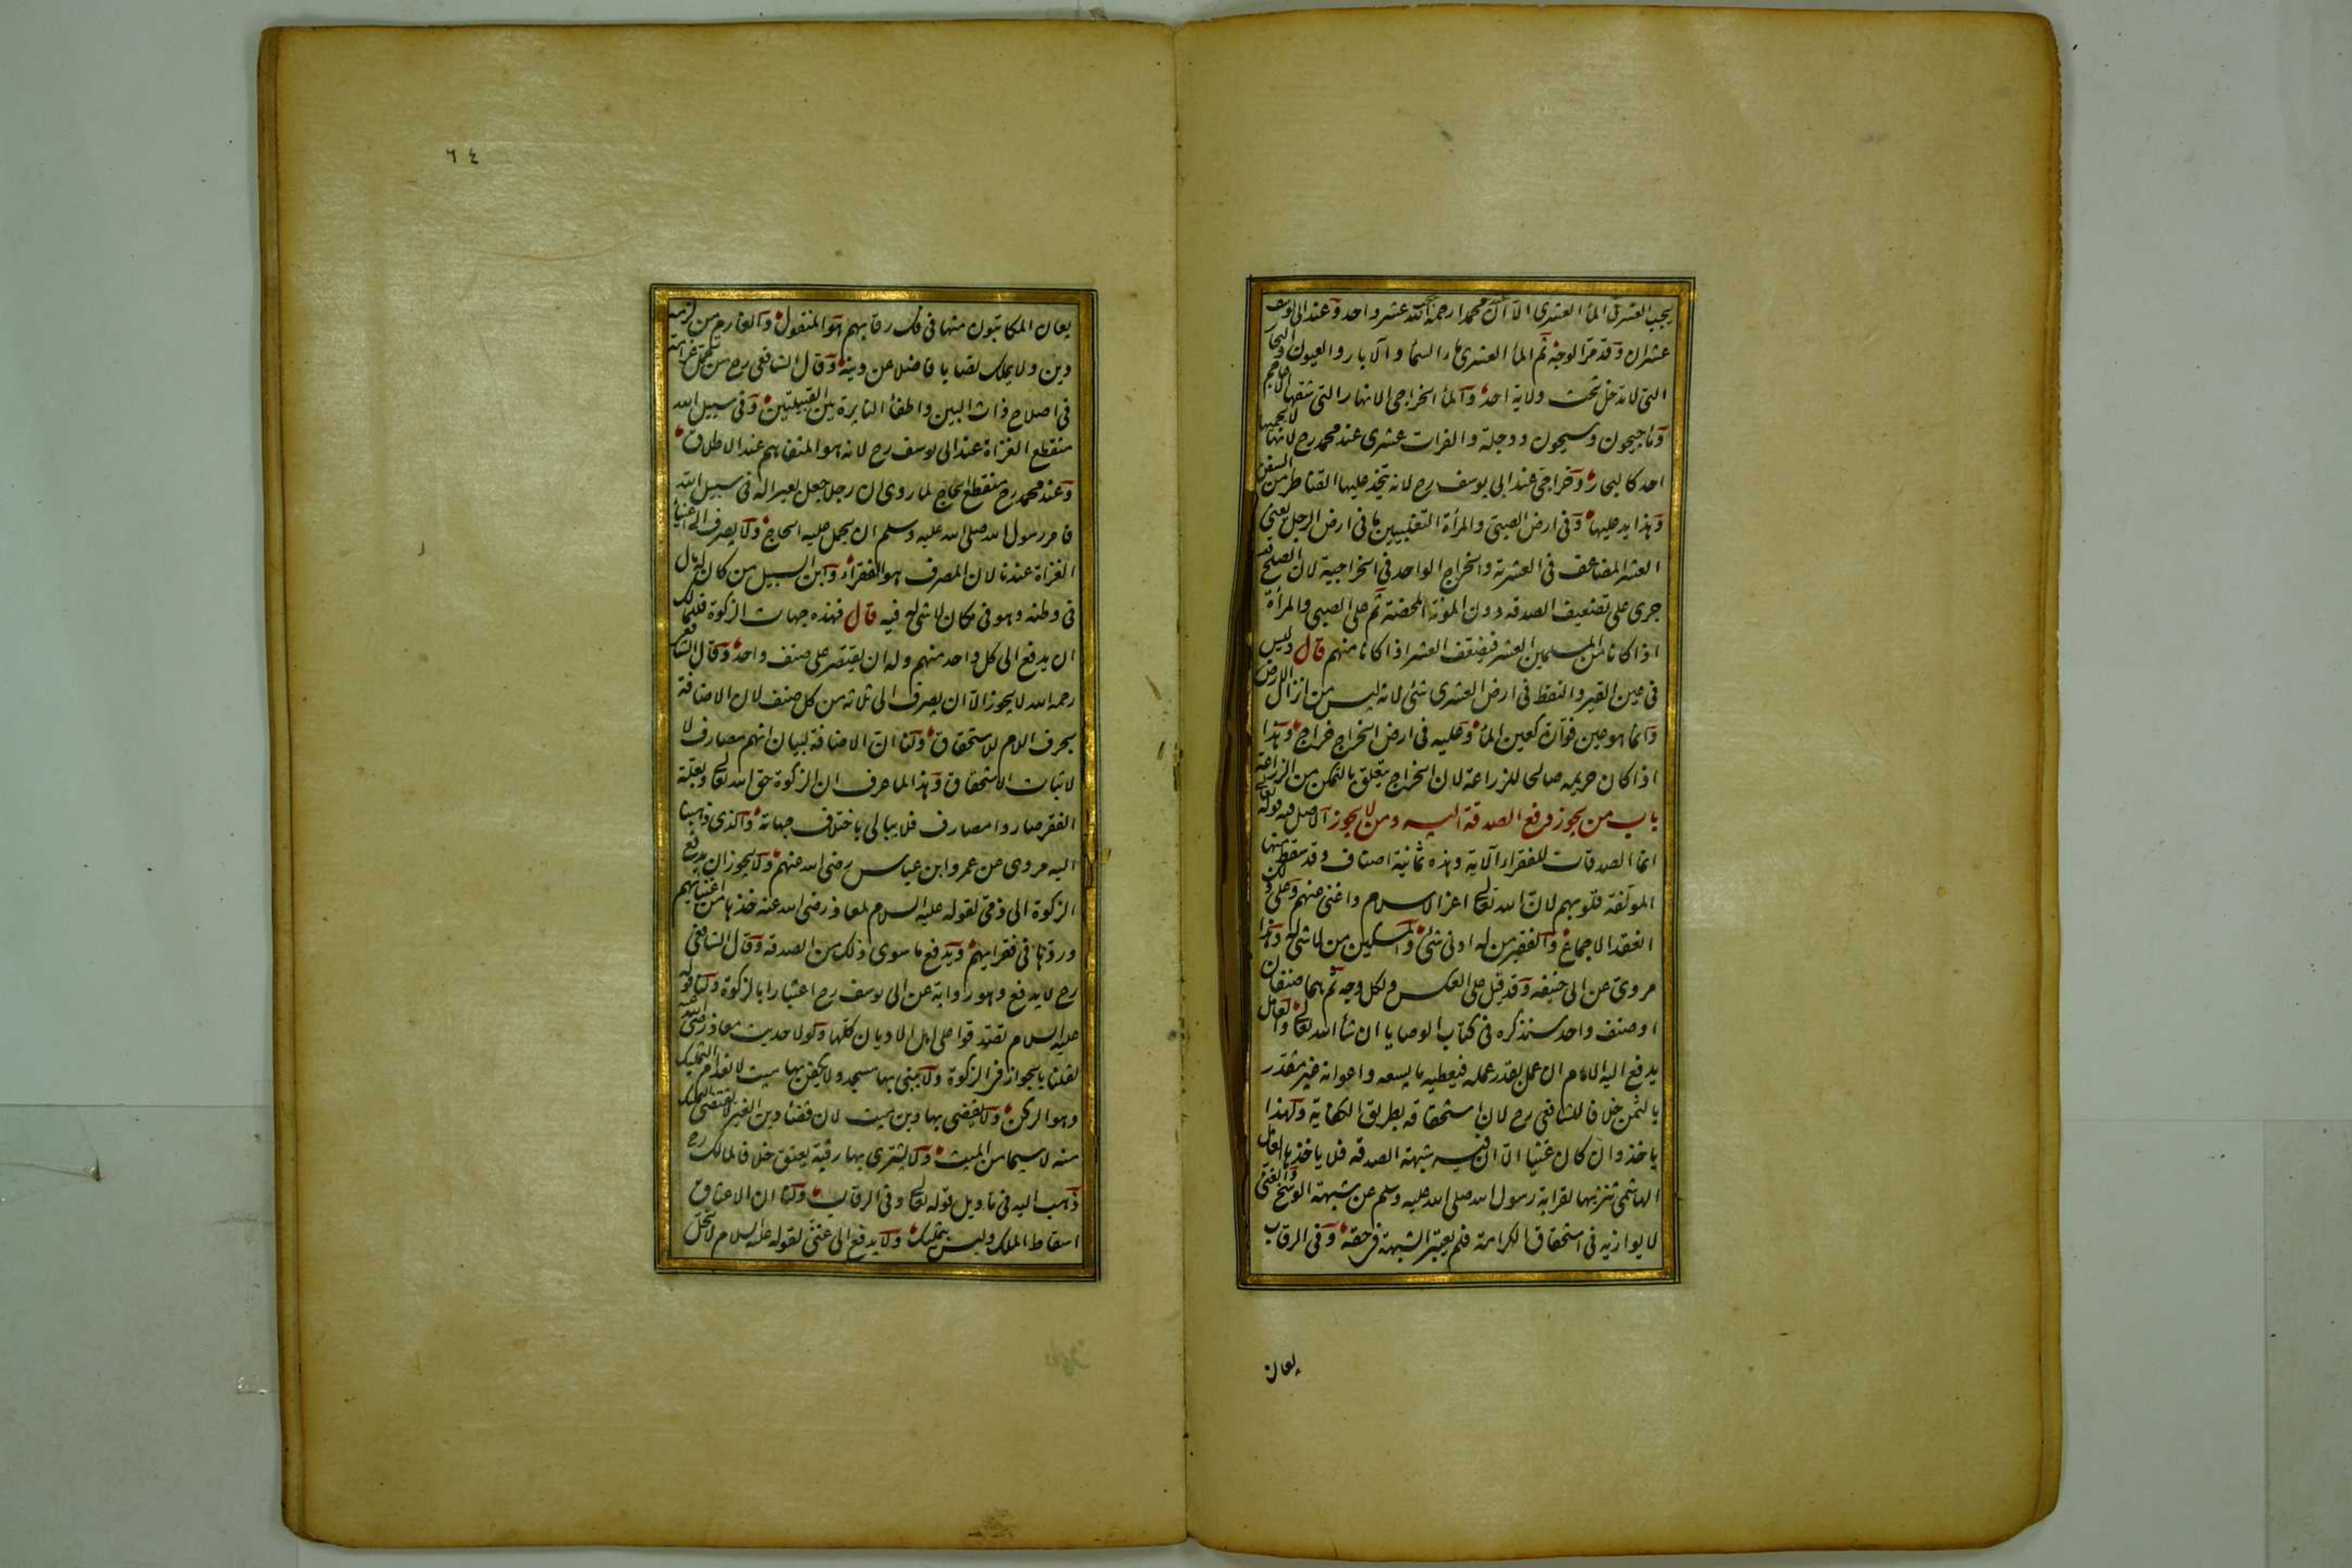 يجب العشر فى الماء العشرى الا ان عند محمد رحمه الله عشر واحد وعند ابى يوسف
عشران وقد مر الوجه ثم الماء العشرى ماء السماء والآبار والعيون والبحار
التى لا تدخل تحت ولاية احد والماء الخراجى الانهار التى شقها الاعاجم
وماء جيحون وسيحون ودجلة والفرات عشرى عند محمد رح لانه لا يحميها
احد كالبحار وخراجى عند ابى يوسف رح لانه يتخذ عليها القناطر من السفن
وهذا يد عليها وفى ارض الصبى والمرأة التغلبيين ما فى ارض الرجل يعنى
العشر المضاعف فى العشرية والخراج الواحد فى الخراجية لان الصلح قد
جرى على تضعيف الصدقة دون المؤنة المحضة ثم على الصبى والمرأة
اذا كانا من المسلمين العشر فيضعف العشر اذا كانا منهم قال وليس
فى عين القير والنفط فى ارض العشرى شئ لانه ليس من انزال الارض
وانما هو عين فوارة كعين الماء وعليه فى ارض الخراج خراج وهذا
اذا كان حريمه صالحا للزراعة لان الخراج يتعلق بالتمكن من الزراعة
باب من يجوز دفع الصدقة اليه ومن لا يجوز الاصل فيه قوله تعالى
انما الصدقات للفقراء الآية وهذه ثمانية اصناف وقد سقط منها
المؤلفة قلوبهم لان الله تعالى اعز الاسلام واغنى عنهم وعلى ذلك
انعقد الاجماع والفقير من له ادنى شئ والمسكين من لا شئ له وهذا
مروى عن ابى حنيفه وقد قيل على العكس ولكل وجه ثم هما صنفان
او صنف واحد سنذكره فى كتاب الوصايا ان شاء الله تعالى والعامل
يدفع اليه الامام ان عمل بقدر عمله فيعطيه ما يسعه واعوانه غير مقدر
بالثمن خلافا للشافعى رح لان استحقاقه بطريق الكفاية ولهذا
ياخذ وان كان غنيا الا ان فيه شبهة الصدقه فلا ياخذها العامل
الهاشمى تنزيها لقرابة رسول الله صلى الله عليه وسلم عن شبهة الوسخ والغنى
لا يوازيه فى استحقاق الكرامة فلم يعتبر الشبهة فى حقه وفى الرقاب
يعان
٦٤
يعان المكاتبون منها فى فك رقابهم هو المنقول والغارم من لزمه
دين ولا يملك نصابا فاضلا عن دينه وقال الشافعى رح من تحمل غرامة
فى اصلاح ذات البين واطفاء النايرة بين القبيلتين وفى سبيل الله
منقطع الغزاة عند ابى يوسف رح لانه هو المتفاهم عند الاطلاق
وعند محمد رح منقطع الحاج لما روى ان رجلا جعل بعيرا له فى سبيل الله
فامر رسول الله صلى الله عليه وسلم ان يحمل عليه الحاج ولا يصرف الى اغنياء
الغزاة عندنا لان المصرف هو الفقراء وابن السبيل من كان له مال
فى وطنه وهو فى مكان لا شئ له فيه قال فهذه جهات الزكوة فللمالك
ان يدفع الى كل واحد منهم وله ان يقتصر على صنف واحد وقال الشافعى
رحمه الله لا يجوز الا ان يصرف الى ثلاثة من كل صنف لان الاضافة
بحرف اللام للاستحقاق ولنا ان الاضافة لبيان انهم مصارف لا
لاثبات الاستحقاق وهذا لما عرف ان الزكوة حق الله تعالى وبعلة
الفقر صاروا مصارف فلا يبالى باختلاف جهاته والذى ذهبنا
اليه مروى عن عمر وابن عباس رضى الله عنهم ولا يجوز ان يدفع
الزكوة الى ذمى لقوله عليه السلام لمعاذ رضى الله عنه خذها من اغنيائهم
وردها فى فقرائهم ويدفع ما سوى ذلك من الصدقه وقال الشافعى
رح لا يدفع وهو رواية عن ابى يوسف رح اعتبارا بالزكوة ولنا قوله
عليه السلام تصدقوا على اهل الاديان كلها ولولا حديث معاذ رضى الله عنه
لقلنا بالجواز فى الزكوة ولا يبنى بها مسجد ولا يكفن بها ميت لانعدام التمليك
وهو الركن ولا يقضى بها دين ميت لان قضاء دين الغير لا يقتضى التمليك
منه لا سيما من الميت ولا يشترى بها رقبة يعتق خلافا لمالك رح
ذهب اليه فى تأويل قوله تعالى وفى الرقاب ولنا ان الاعتاق
اسقاط الملك وليس بتمليك ولا يدفع الى غنى لقوله عليه السلام لا تحل